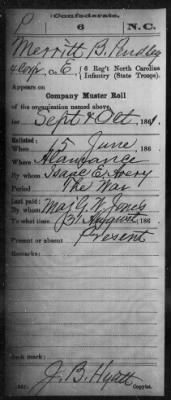 P
Confederate.
6 N.C.
Merritt B. Pursley
4 Corp, Co. E, 6 Reg't North Carolina
Infantry (State Troops).
Appears on
Company Muster Roll
of the organization named above,
for Sept & Oct, 1861.
Enlisted:
When 15 June, 186
Where Alamance
By whom Isaac E. Avery
Period The War
Last paid:
By whom Maj G. W. Jones
To what time 31 August, 186
Present or absent Present
Remarks:
Book mark:
J. B. Hyatt
Copyist.